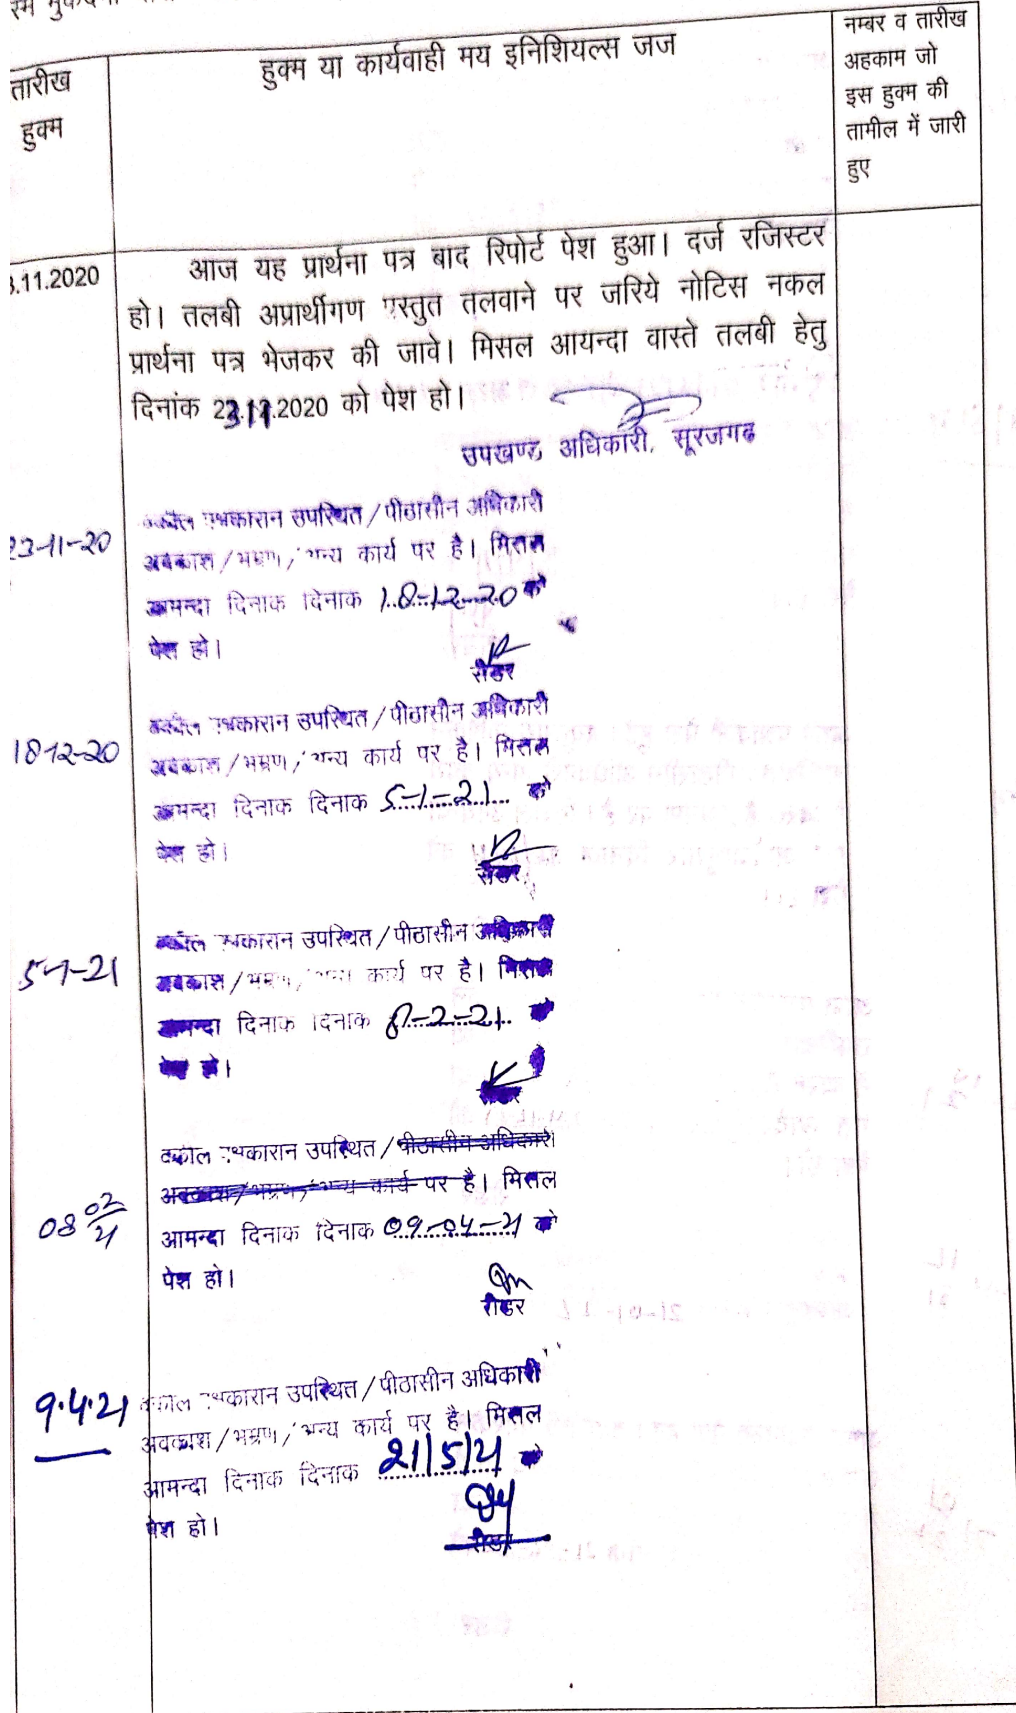 तारीख
हुक्म
हुक्म या कार्यवाही मय इनिशियल्स जज
नम्बर व तारीख
अहकाम जो
इस हुक्म की
तामील में जारी
हुए
.11.2020
आज यह प्रार्थना पत्र बाद रिपोर्ट पेश हुआ। दर्ज रजिस्टर
हो। तलबी अप्रार्थीगण प्रस्तुत तलवाने पर जरिये नोटिस नकल
प्रार्थना पत्र भेजकर की जावे। मिसल आयन्दा वास्ते तलबी हेतु
दिनांक 23.11.2020 को पेश हो।
उपखण्ड अधिकारी, सूरजगढ
23-11-20
वकील पक्षकारान उपस्थित/पीठासीन अधिकारी
अवकाश/भम्रण/अन्य कार्य पर है। मिसल
आमन्दा दिनाक दिनाक 18-12-20 को
पेश हो।
रीडर
18-12-20
वकील पक्षकारान उपस्थित/पीठासीन अधिकारी
अवकाश/भम्रण/अन्य कार्य पर है। मिसल
आमन्दा दिनाक दिनाक 5-1-21 को
पेश हो।
रीडर
5-1-21
वकील पक्षकारान उपस्थित/पीठासीन अधिकारी
अवकाश/भम्रण/अन्य कार्य पर है। मिसल
आमन्दा दिनाक दिनाक 8-2-21 को
पेश हो।
रीडर
08 02/21
वकील पक्षकारान उपस्थित/पीठासीन अधिकारी
अवकाश/भम्रण/अन्य कार्य पर है। मिसल
आमन्दा दिनाक दिनाक 09-04-21 को
पेश हो।
रीडर
9.4.21
वकील पक्षकारान उपस्थित/पीठासीन अधिकारी
अवकाश/भम्रण/अन्य कार्य पर है। मिसल
आमन्दा दिनाक दिनाक 21/5/21 को
पेश हो।
रीडर